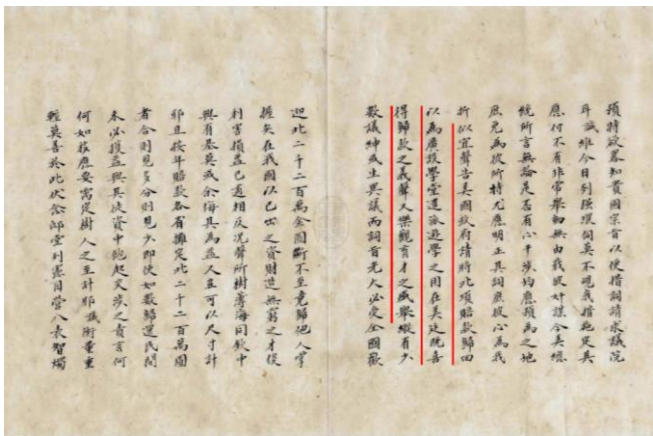 預持政略知貴國宗旨以便措詞請求議院
耳誠維今日列強環伺莫不覘我措施定其
應付不有非常舉動無由戢彼奸謀今美總
統所言無論是否有心干涉均應預為之地
庶免為彼所持尤應明正其詞
折似宜聲告美國政府請將此項賠款歸回
以為廣設學堂遣派遊學之用在美廷既喜
得歸款之義聲又樂觀育才之盛舉縱有少
數議紳或生異議而詞旨光大必受全國歡
迎此二千二百萬金圓斷不至竟歸他人掌
握矣在我國以已出之資財造無窮之才俊
利害損益已適相反況聲所樹薄海同欽中
與有基莫或余侮其為益人豈可以尺寸計
耶且按年賠款各省攤定此二千二百萬圓
者合則見多分則見少即使如數歸還民間
未必獲益與其徒資中飽起交涉之責言何
何如移應要需定樹人之至計耶誠術重重
輕莫善於此伏念邸堂列憲目營八表智燭